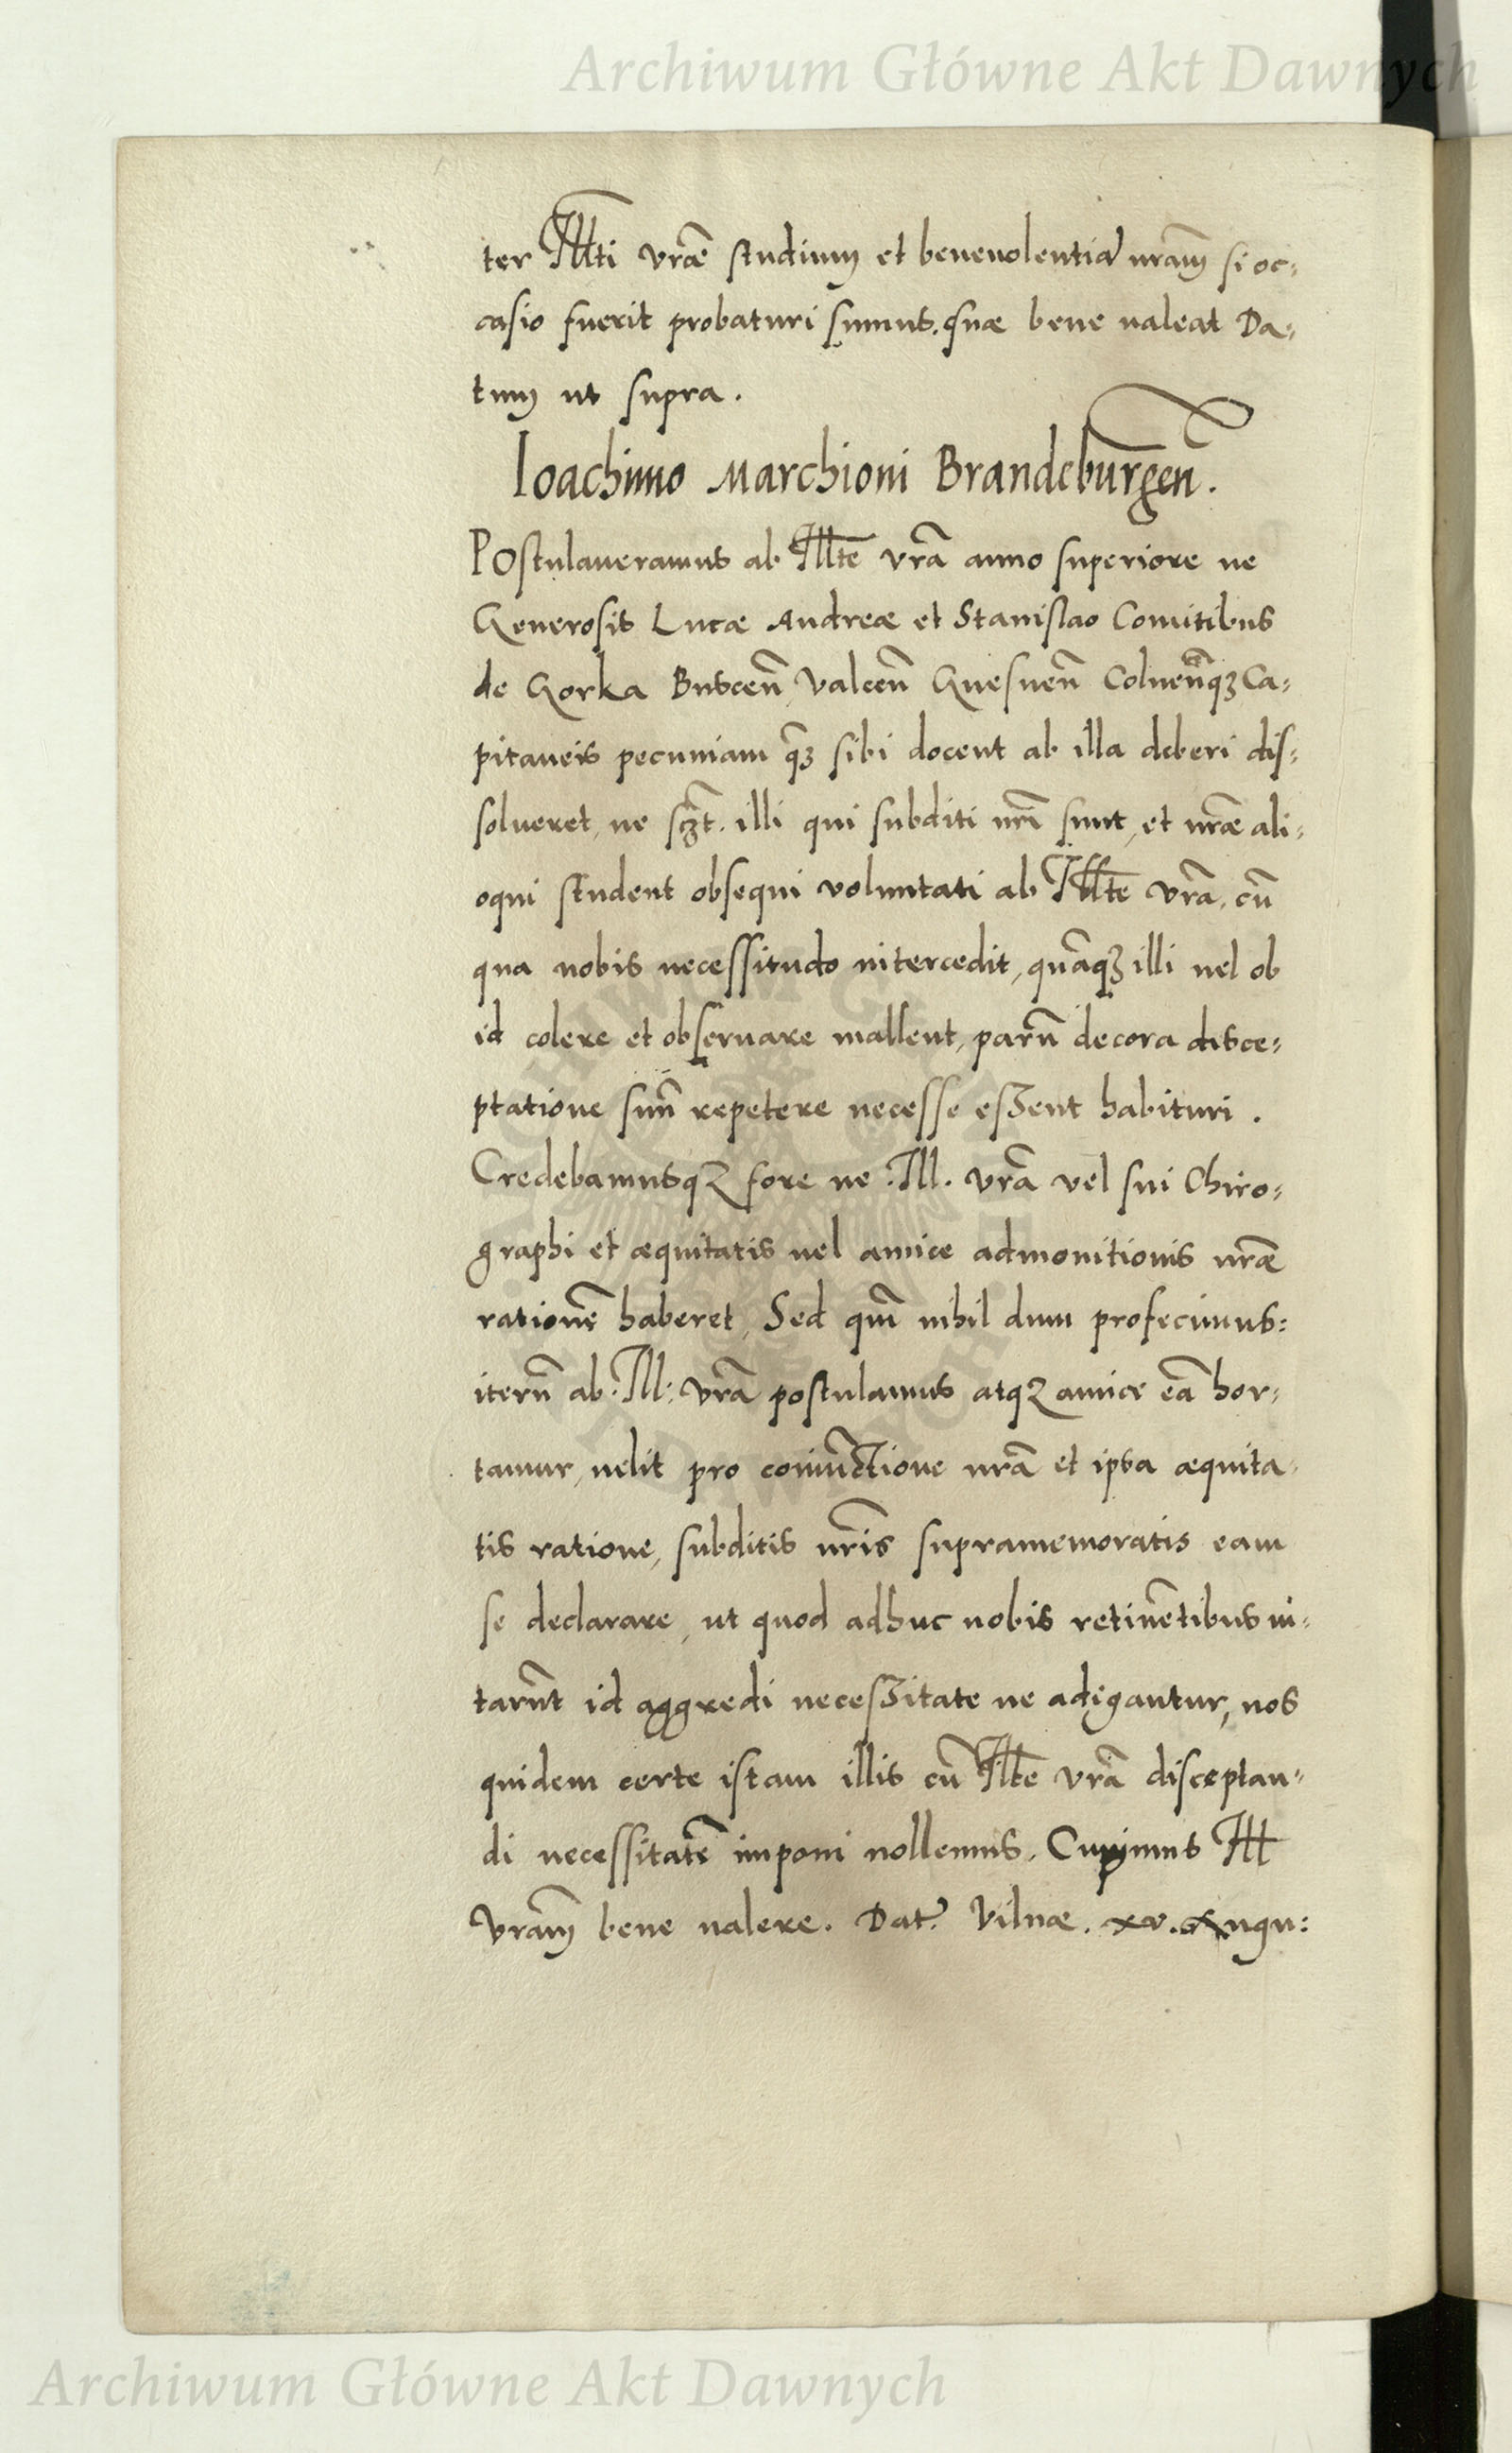 Archiwum Główne Akt Dawnych
ter Illti vrae studium et beneuolentiã nram si oc-
casio fuerit probaturi sumus. quae bene ualeat Da-
tum ut supra.
Ioachimo Marchioni Brandeburgen.
Postulaueramus ab Illte vrã anno superiore ne
Generosis Lucae Andreae et Stanislao Comitibus
de Gorka Buscen̄ Valcen̄ Gnesnen̄ Colnen̄qȝ Ca-
pitaneis pecuniam qȝ sibi docent ab illa deberi dis-
solueret, ne illi qui subditi nrī sunt, et nrae ali-
oqui student obsequi voluntati ab Illte vrã, cũ
qua nobis necessitudo intercedit, quãqȝ illi uel ob
id colere et obseruare mallent, parũ decora disce-
ptatione suũ repetere necesse essent habituri.
Credebamusqȝ fore ne Ill. vrã vel sui Chiro-
graphi et aequitatis uel amice admonitionis nrae
rationẽ haberet, Sed qm̃ nihil dum profecimus:
iterũ ab Ill: vrã postulamus atqȝ amice eã hor-
tamur, uelit pro coniũctione nrã et ipsa aequita-
tis ratione, subditis nrĩs supramemoratis eam
se declarare, ut quod adhuc nobis retinẽtibus ui-
tarũt id aggredi necessitate ne adigantur, nos
quidem certe istam illis cũ Illte vrã disceptan-
di necessitatẽ imponi nollemus. Cupimus Ill
vram bene ualere. Dat. Vilnae. xv. Augu:
Archiwum Główne Akt Dawnych